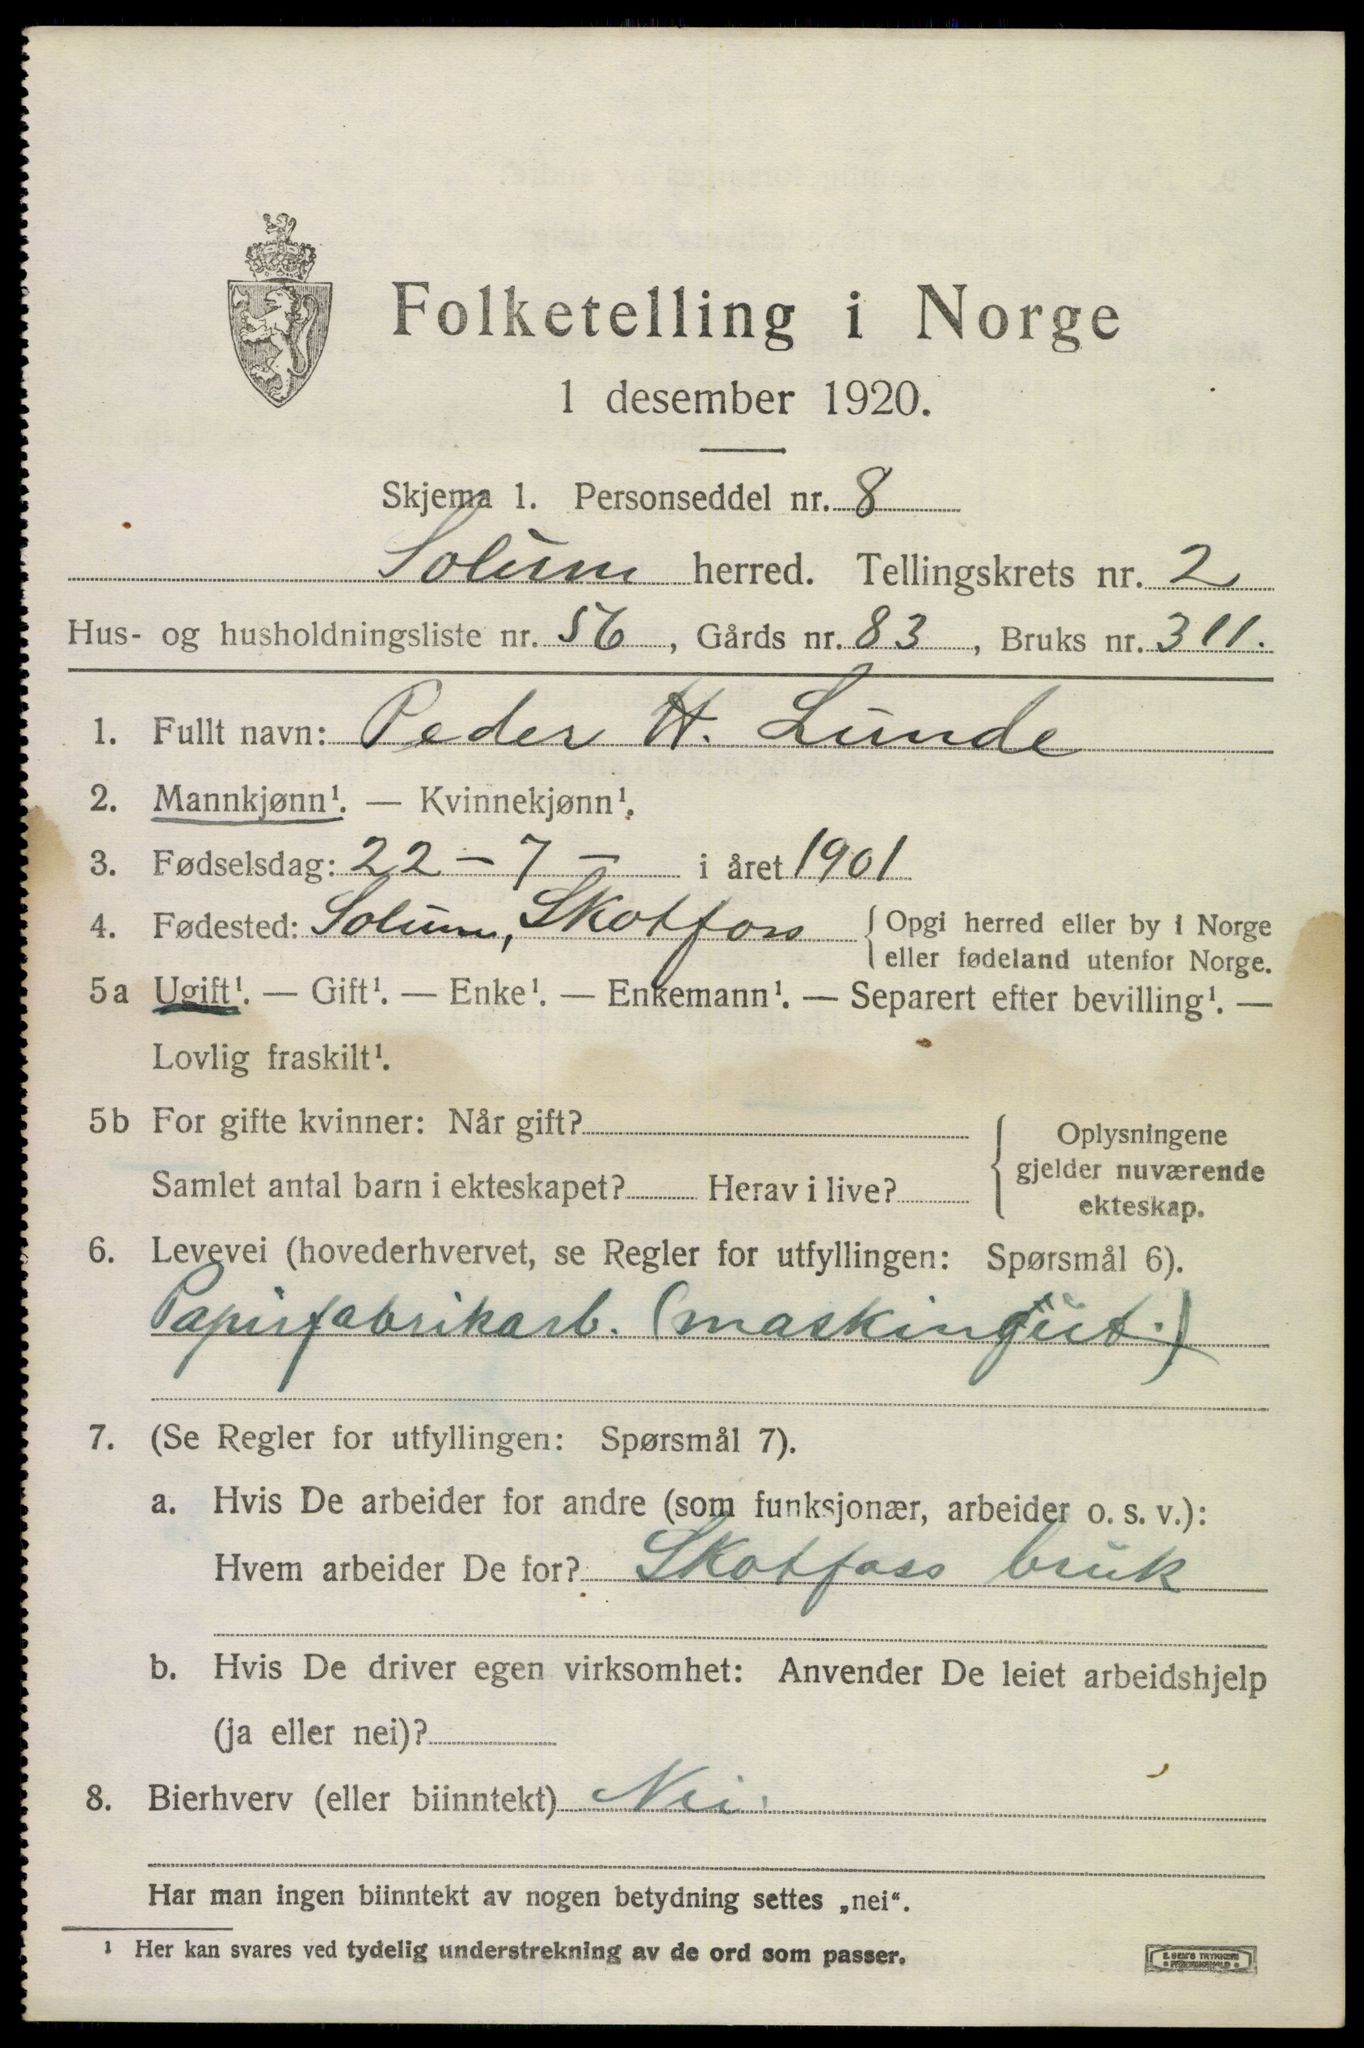 Folketelling i Norge
1 desember 1920.
Skjema 1. Personseddel nr. 8
Solum herred. Tellingskrets nr. 2
Hus- og husholdningsliste nr. 56, Gårds nr. 83, Bruks nr. 311.
1. Fullt navn: Peder H. Lunde
2. Mannkjønn¹. — Kvinnekjønn¹.
3. Fødselsdag: 22 - 7 - i året 1901
4. Fødested: Solum, Skotfoss { Opgi herred eller by i Norge
eller fødeland utenfor Norge.
5a Ugift¹. — Gift¹. — Enke¹. — Enkemann¹. — Separert efter bevilling¹. —
Lovlig fraskilt¹.
5b For gifte kvinner: Når gift?
Samlet antal barn i ekteskapet? Herav i live?
Oplysningene
gjelder nuværende
ekteskap.
6. Levevei (hovederhvervet, se Regler for utfyllingen: Spørsmål 6).
Papirfabrikarb. (maskingut.)
7. (Se Regler for utfyllingen: Spørsmål 7).
a. Hvis De arbeider for andre (som funksjonær, arbeider o. s. v.):
Hvem arbeider De for? Skotfoss bruk
b. Hvis De driver egen virksomhet: Anvender De leiet arbeidshjelp
(ja eller nei)?
8. Bierhverv (eller biinntekt) Nei.
Har man ingen biinntekt av nogen betydning settes „nei“.
¹ Her kan svares ved tydelig understrekning av de ord som passer.